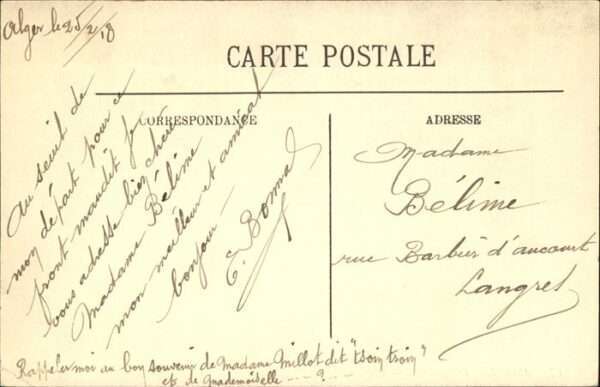 Alger le 25/2/18
CARTE POSTALE
CORRESPONDANCE
ADRESSE
Au seuil de
mon départ pour ce
front maudit je
vous adresse bien chère
Madame Bélime
mon meilleur et amical
bonjour –
E. Bonnal
Madame
Bélime
rue Barbier d'aucourt
Langres
Rappeler moi au bon souvenir de Madame Millot dit "tsoin tsoin"
et de Mademoiselle ---- ?